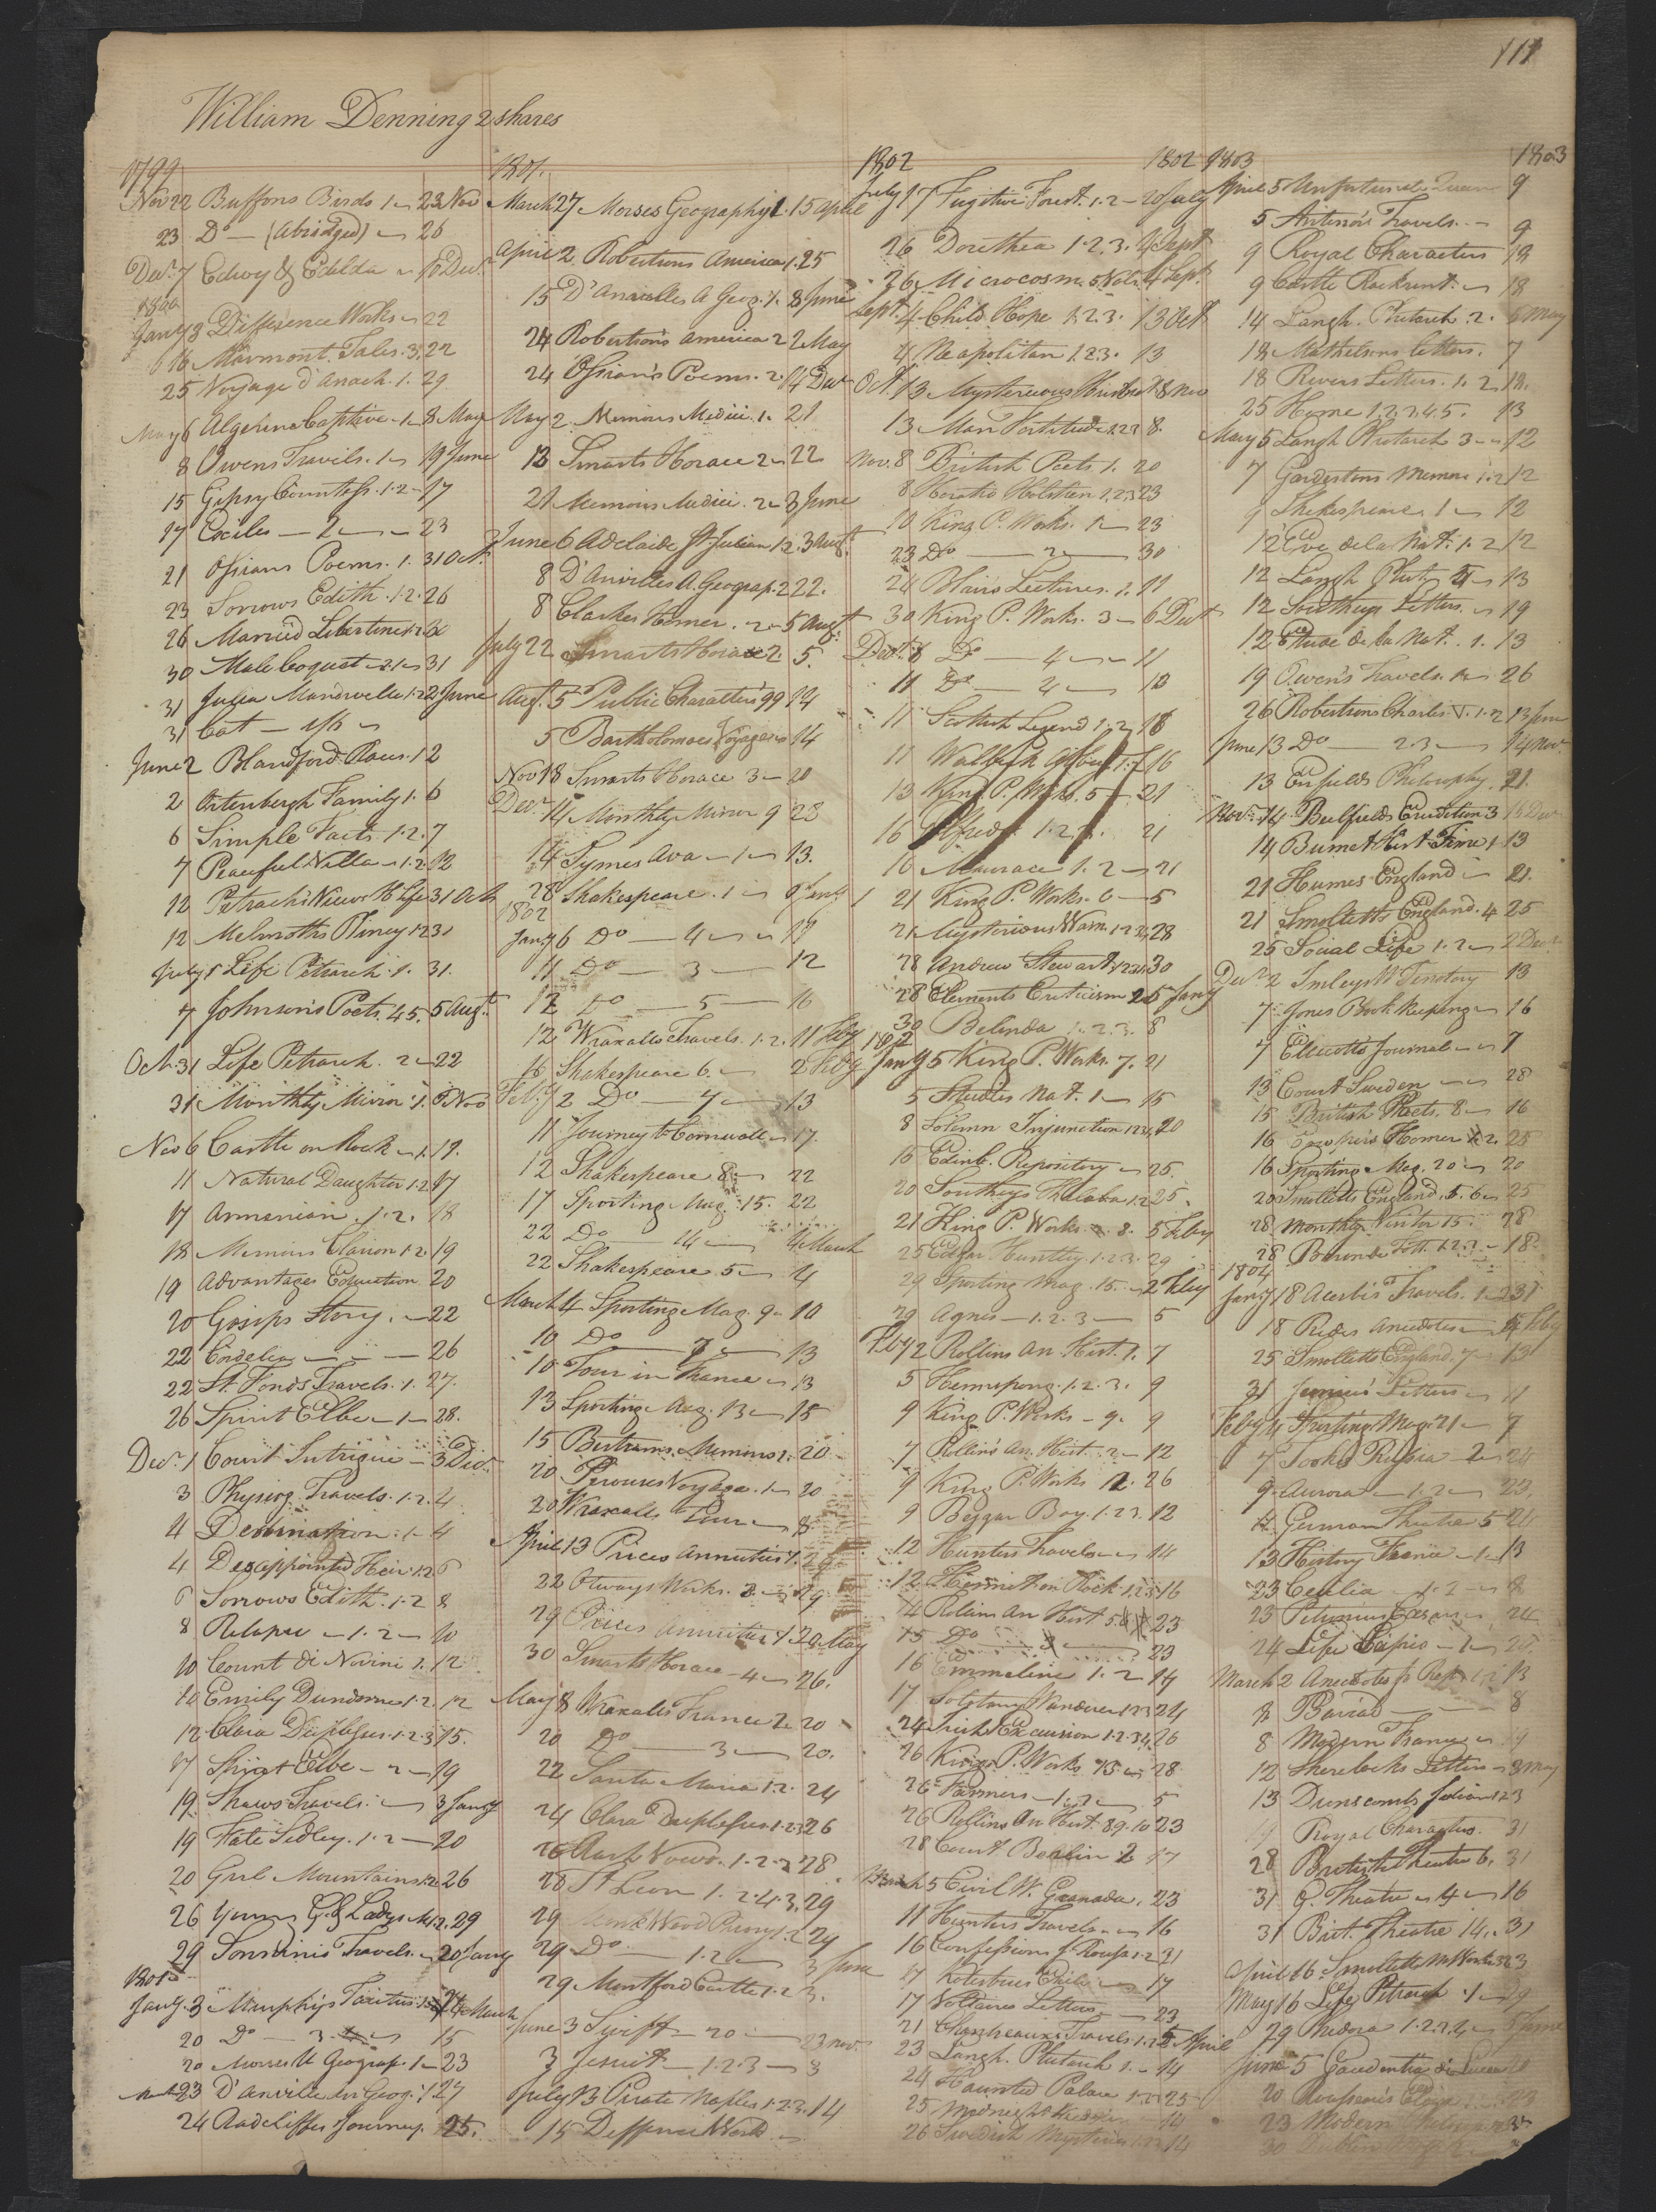 111
William Denning 2 shares
1799
Nov 22 Buffons Birds 1 23 Nov
23 Do (abridged) 26
Decr. 7 Edwy & Edilda 10 Decr.
1800
Jany 8 Difference Works 22
16 Marmont. Tales. 3. 22
25 Voyage d'Anach. 1. 29
May 6 Algerine Captive 1 8 May
8 Owens Travels. 1 19 June
15 Gipsy Countess. 1.2 17
17 Exiles 2 23
21 Ossians Poems. 1. 31 Oct.
23 Sorrows Edith. 1.2. 26
26 Married Libertine 1.2
30 Male Coquet 31
31 Julia Mandevelle 1.2 2 June
31 Cat
June 2 Blandford Races. 12
2 Ortenbergh Family 1. 6
6 Simple Facts. 1.2. 7
7 Peaceful Villa 1.2. 12
12 Petrach's View H Life 31 Oct
12 Melmoths Pliney 1.2 31
July 1 Life Petrarch. 1. 31.
7 Johnsons Poets. 45. 5 Augt.
Oct. 31 Life Petrarch. 2 22
31 Monthly Mirror. 1. Nov
Nov 6 Castle on Rock 1. 19.
11 Natural Daughter 1.2 17
17 Armenian. 1.2. 18
18 Memoirs Clarion 1.2 19
19 Advantages Education 20
20 Gosips Story. 22
22 Cordelia 26
22 St. Fonds Travels. 1. 27.
26 Spirit Elbe 1 28.
Decr. 1 Count Intrigue 3 Decr.
3 Physiog. Travels. 1.2. 4
4 Destination. 1 4
4 Disappointed Heir 1.2 6
6 Sorrows Edith. 1.2 8
8 Relapse 1.2 10
10 Count di Novini 1. 12
10 Emily Dundorne 1.2. 12
12 Clara Duplessus. 1.2.3 15.
17 Spirit Elbe 2 19
19 Shaws Travels. 3 Jany
19 Kate Sedley. 1.2 20
20 Girl Mountains 1.2 26
26 Young G. & Ladys M 1.2. 29
29 Sonninis Travels. 20 Jany
1801
Jany. 3 Murphys Tacitus. March
20 Do 3 15
20 Morses U Geograp. 1 23
23 D'Anville An Geog. 1 27
24 Radcliffes Journey. 25.
1801.
March 27 Morses Geography 1. 15 April
April 2 Robertsons America 1. 25
15 D'Anvilles A Geog. 1. 8 June
24 Robertsons America 2 2 May
24 Ossian's Poems. 2. 4 Decr
May 2 Memoirs Medici. 1. 21
13 Smarts Horace 2 22
21 Memoirs Medici. 2 3 June
June 6 Adelaide St. Julian 1.2. 3 Augt.
8 D'Anvilles A. Geograp. 2 22.
8 Clarkes Homer. 2 5 Augt.
July 22 Smarts Horace 2. 5.
Augt. 5 Public Characters 99 14
5 Bartholomaes Voyages 14
Nov 18 Smarts Horace 3 20
Decr. 14 Monthly Mirror 9 28
14 Symes Ava 1 13.
28 Shakespeare. 1 Jany
1802
Jany 6 Do 4
11 Do 3 12
12 Do 5 16
12 Wraxalls Travels. 1.2. 11 Feby
16 Shakespeare 6. 2 Feby
Feby 2 Do 7 13
11 Journey to Cornwall 17.
12 Shakespeare 8 22
17 Sporting Mag. 15. 22
22 Do 14 4 March
22 Shakespeare. 5 4
March 4 Sporting Mag. 9 10
10 Do 7 13
10 Tour in France 13
13 Sporting Mag. 13 15
15 Bertrams Memoirs 20
20 Perouses Voyage. 1 20
20 Wraxalls Tour 8
April 13 Prices Annuities 1. 29
22 Otways Works. 29
29 Prices Annuities 1. 20 May
30 Smarts Horace 4 26.
May 8 Wraxalls France 2 20
20 Do 3 20.
22 Santa Maria 1.2. 24
24 Clara Duplessus. 1.2.3 26
26 Rash Vows. 1.2.3 28
28 St Leon 1.2.4.3. 29
29 Monk Wood Priory 1.2 29
29 Do 1.2 3 June
29 Montford Castle 1.2 3.
June 3 Swift 20 23 Nov.
3 Jesuit 1.2.3 8
July 13 Pirate Naples 1.2.3. 14
15 Defference World
1802 1802
July 17 Fugitive Forest. 1.2 20 July
26 Dorethea 1.2.3. 4 Sept
26 Microcosm 5 Vols. 4 Sept.
Sept. 4 Child Hope 1.2.3. 13 Oct
4 Neapolitan 1.2.3. 13
Oct. 13 Mysterious Husband 8 Nov
13 Man Fortitude 1.2.3 8.
Nov. 8 British Poets 1. 20
8 Horatio Holstien 1.2.3 23
10 King P. Works. 1 23
23 Do 2 30
24 Blair's Lectures. 1. 11
30 King P. Works. 3 6 Decr
Decr. 6 Do 4 11
11 Do 4 13
11 Scottish Legend 1.2 18
11 Walbeck Abbey 1.2 16
13 King P. Works. 5 21
16 Alfred 1.2. 21
16 Maurace 1.2 21
21 King P. Works. 6 5
21 Mysterious Warn. 1.2.3. 28
28 Andrew Stewart. 1.2.3. 30
28 Elements Criticism 2 5 Jany
30 Belinda 1.2.3. 8
Jany 5 King P. Works. 7. 21
5 Studies Nat. 1 15
8 Solemn Injunction 1.2.3. 20
15 Edinb. Repository 25.
20 Southeys Thalaba. 1.2 25.
21 King P. Works. 8. 5 Feby
25 Edgar Huntley. 1.2.3. 29
29 Sporting Mag. 15. 2 Feby
29 Agnes 1.2.3 5
Feby 2 Rollins An. Hist. 1. 7
5 Hermsprong. 1.2.3. 9
9 King P. Works 9. 9
7 Rollins An. Hist. 2 12
9 King P. Works 12. 26
9 Beggar Boy. 1.2.3. 12
12 Hunters Travels 14
12 Hermit on Rock 1.2.3 16
14 Rolins An Hist 5. 23
15 Do 23
16 Emmaline 1.2 19
17 Solstary Wanderer 1.2.3 24
24 Irish Excursion 1.2.3.4. 26
26 King P. Works 15 28
26 Farmers 1.2 5
26 Rollins An Hist. 8.9.10 23
28 Court Berlin 2 17
March 5 Civil W. Granada. 23
11 Hunters Travels 16
16 Confessions J. Rousa. 1.2 21
17 Kotzebues Exile 17
17 Voltaires Letters 23
21 Charpeauxs Travels. 1.2 5 April
23 Langh. Plutarch 1. 14
24 Haunted Palace 1.2.3 25
25 Midnight 14
26 Swedish Mysteries 1.2.3 14
1803 1803
April 5 Unfortunate Queen 9
5 Antenor's Travels. 9
9 Royal Characters 18
9 Castle Rackrent. 18
14 Langh. Plutarch. 2. 6 May
18 Mathelsons Letters. 7
18 Rivers Letters. 1.2 18.
25 Hume 1.2.3.4.5. 13
May 5 Langh Plutarch 3 12
7 Gardestons Memoirs 1.2 12
9 Shakespeare. 1 12
12 Etu. de la Nat. 1.2 12
12 Langh Plut. 4 13
12 Southeys Letters. 19
12 Etude de la Nat. 1. 13
19 Owen's Travels. 1 26
26 Robertsons Charles V. 1.2 13 June
June 13 Do 2.3 14 Nov
13 Enfields Philosophy. 21.
Novr. 14 Beilfields Erudition 3 Decr
14 Burnet Hist Time 1 13
21 Humes England 21.
21 Smolletts England. 4 25
25 Social Life 1.2 2 Decr
Decr. 2 Imleys W Territory 13
7 Jones Book Keeping 16
7 Ellicotts Journal 7
13 Court Sweden 28
15 British Poets. 8 16
16 Cowpers Homer 2. 25
16 Sporting Mag. 20 20
20 Smolletts England. 5.6 25
28 Monthly Visitor 15. 28
28 18
1804
Jany 18 Acerbi's Travels. 1
18 Piejes Anecdotes Feby
25 Smolletts England. 7 13
31 Junius' Letters 11
Feby 4 Sporting Mag. 21 7
7 Tooke Russia 2 24
9 Aurora 1.2 23.
11 German Theatre 5 24
13 History France 1 13
23 Cecilia 1.2 8
23 Petronius Cæsar 24
24 Life Scipio 1 20.
March 2 Anecdotes p Rep. 1.2 13
8 Baviad 8
8 Modern France 19
12 Sherelocks Letters 3 May
13 Dunscomb Julian 1.2 3
19 Royal Characters. 31
28 British Theatre 6. 31
31 G. Theatre 4 16
31 Brit. Theatre 14. 31
April 16 Smolletts M Works 23
May 16 Life Petrarch. 1 29
29 Phedora 1.2.3.4 5 June
June 5 Gaudentia di Lucca
20 Rousseau's Eloisa
23 Modern
30